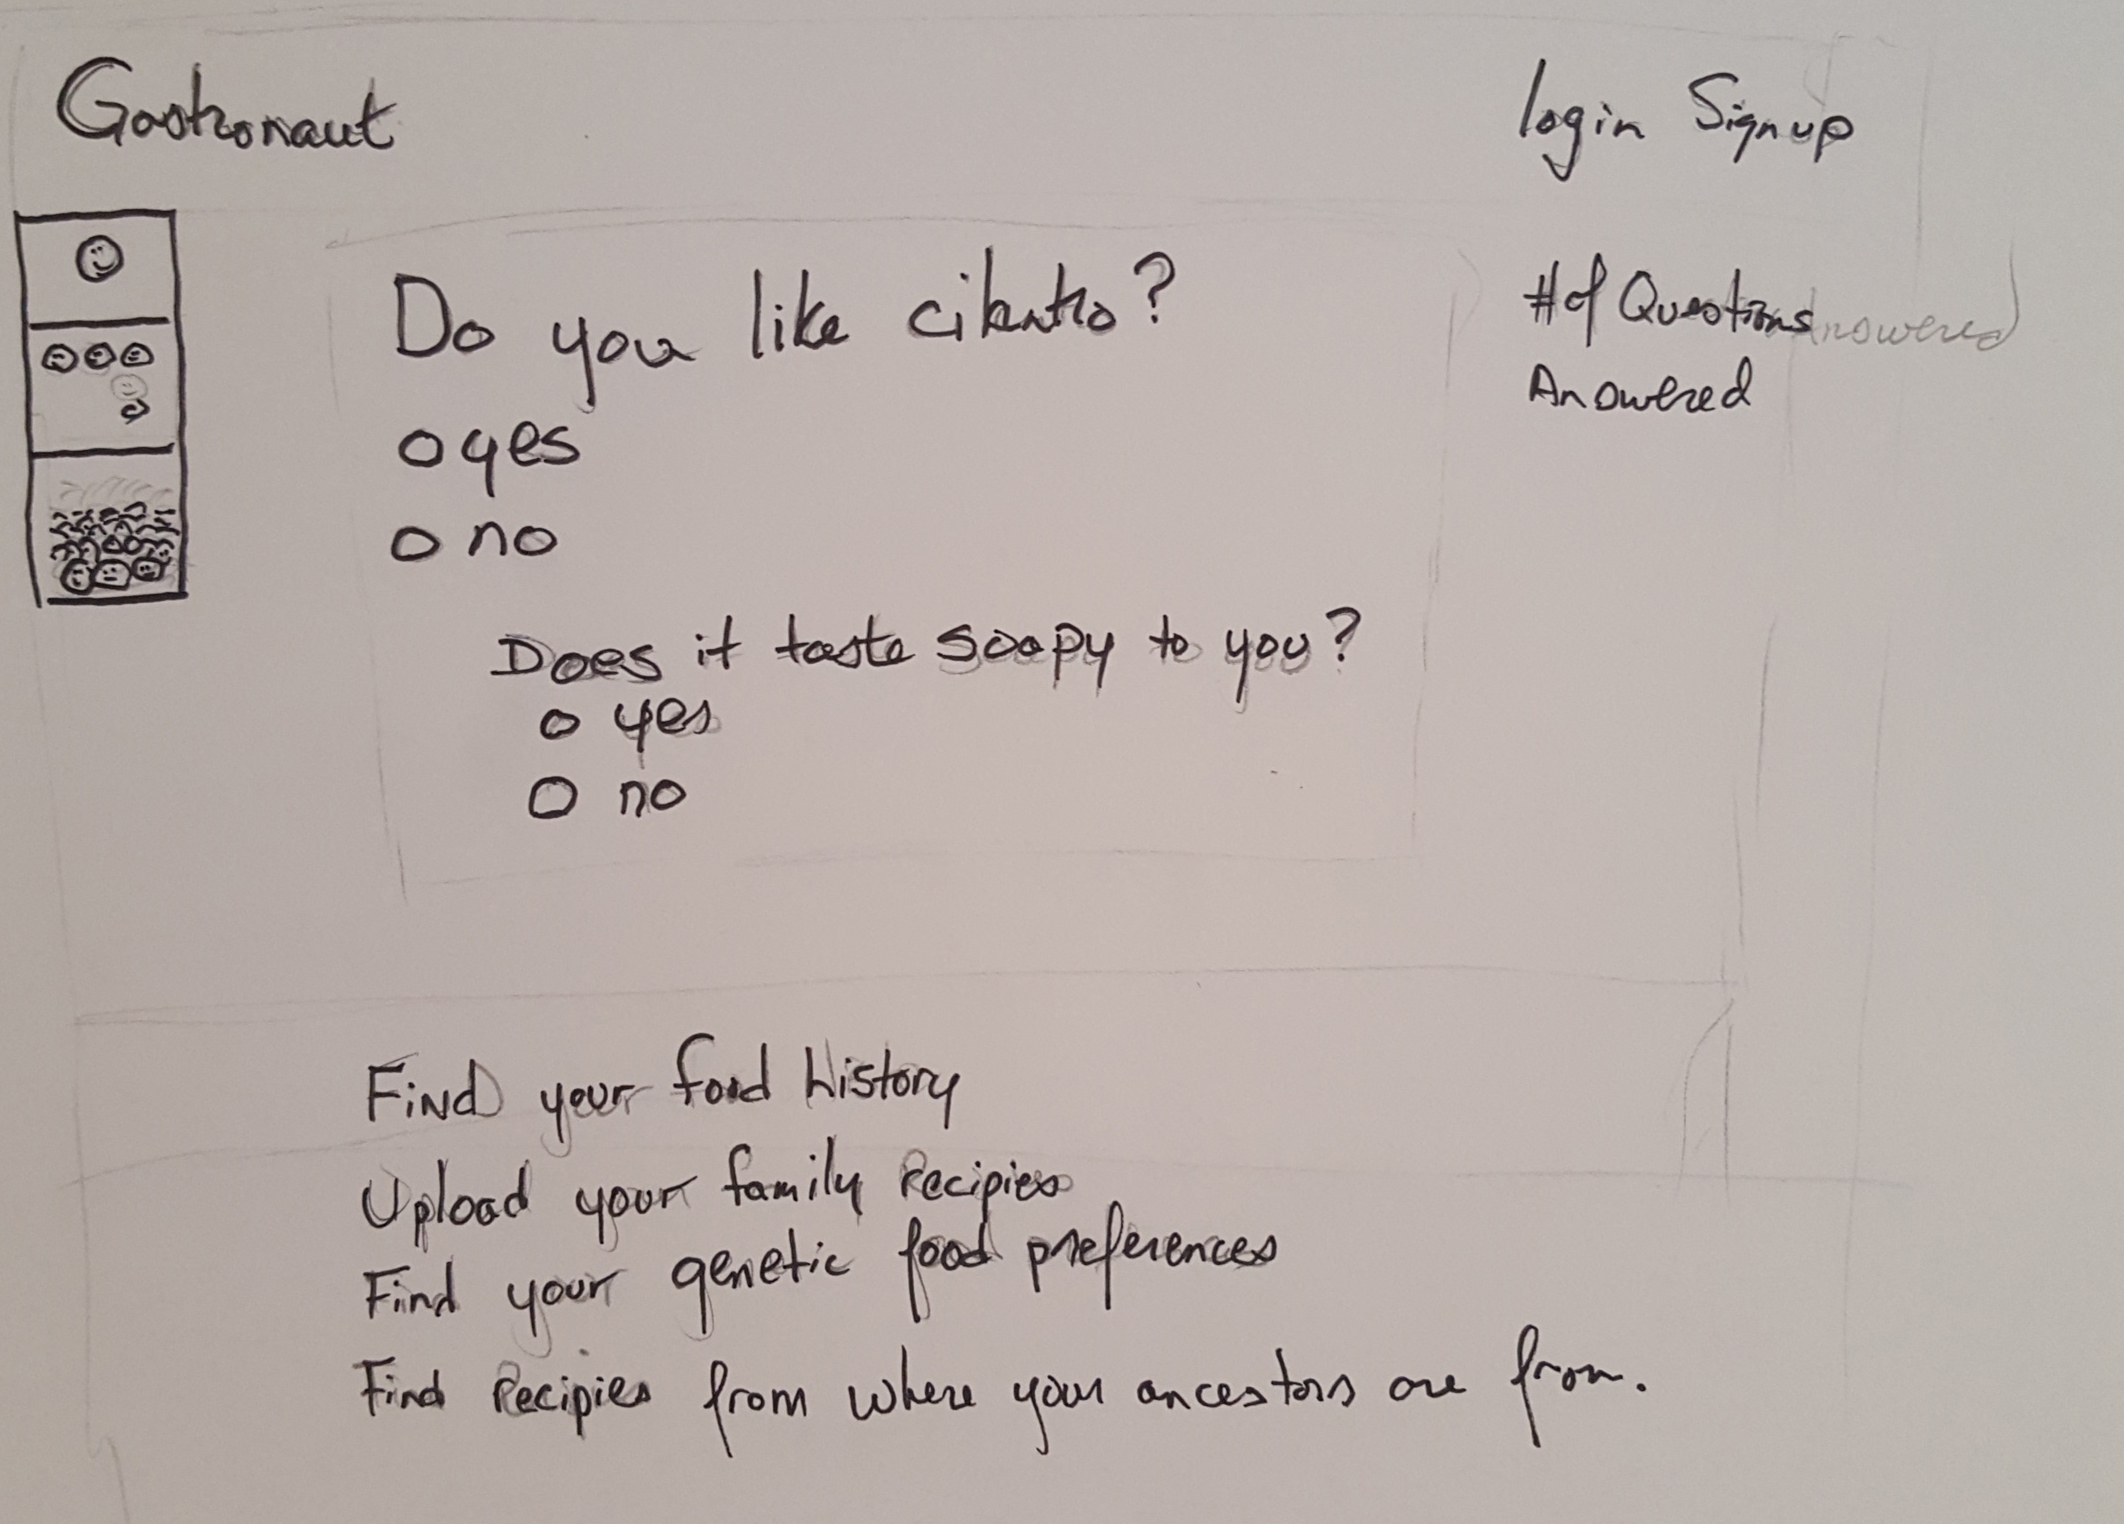 Gastronaut
login Signup
Do you like cilantro?
yes
no
Does it taste soapy to you?
yes
no
# of Questions Answered
Answered
Find your food history
Upload your family Recipies
Find your genetic food preferences
Find Recipies from where your ancestors are from.